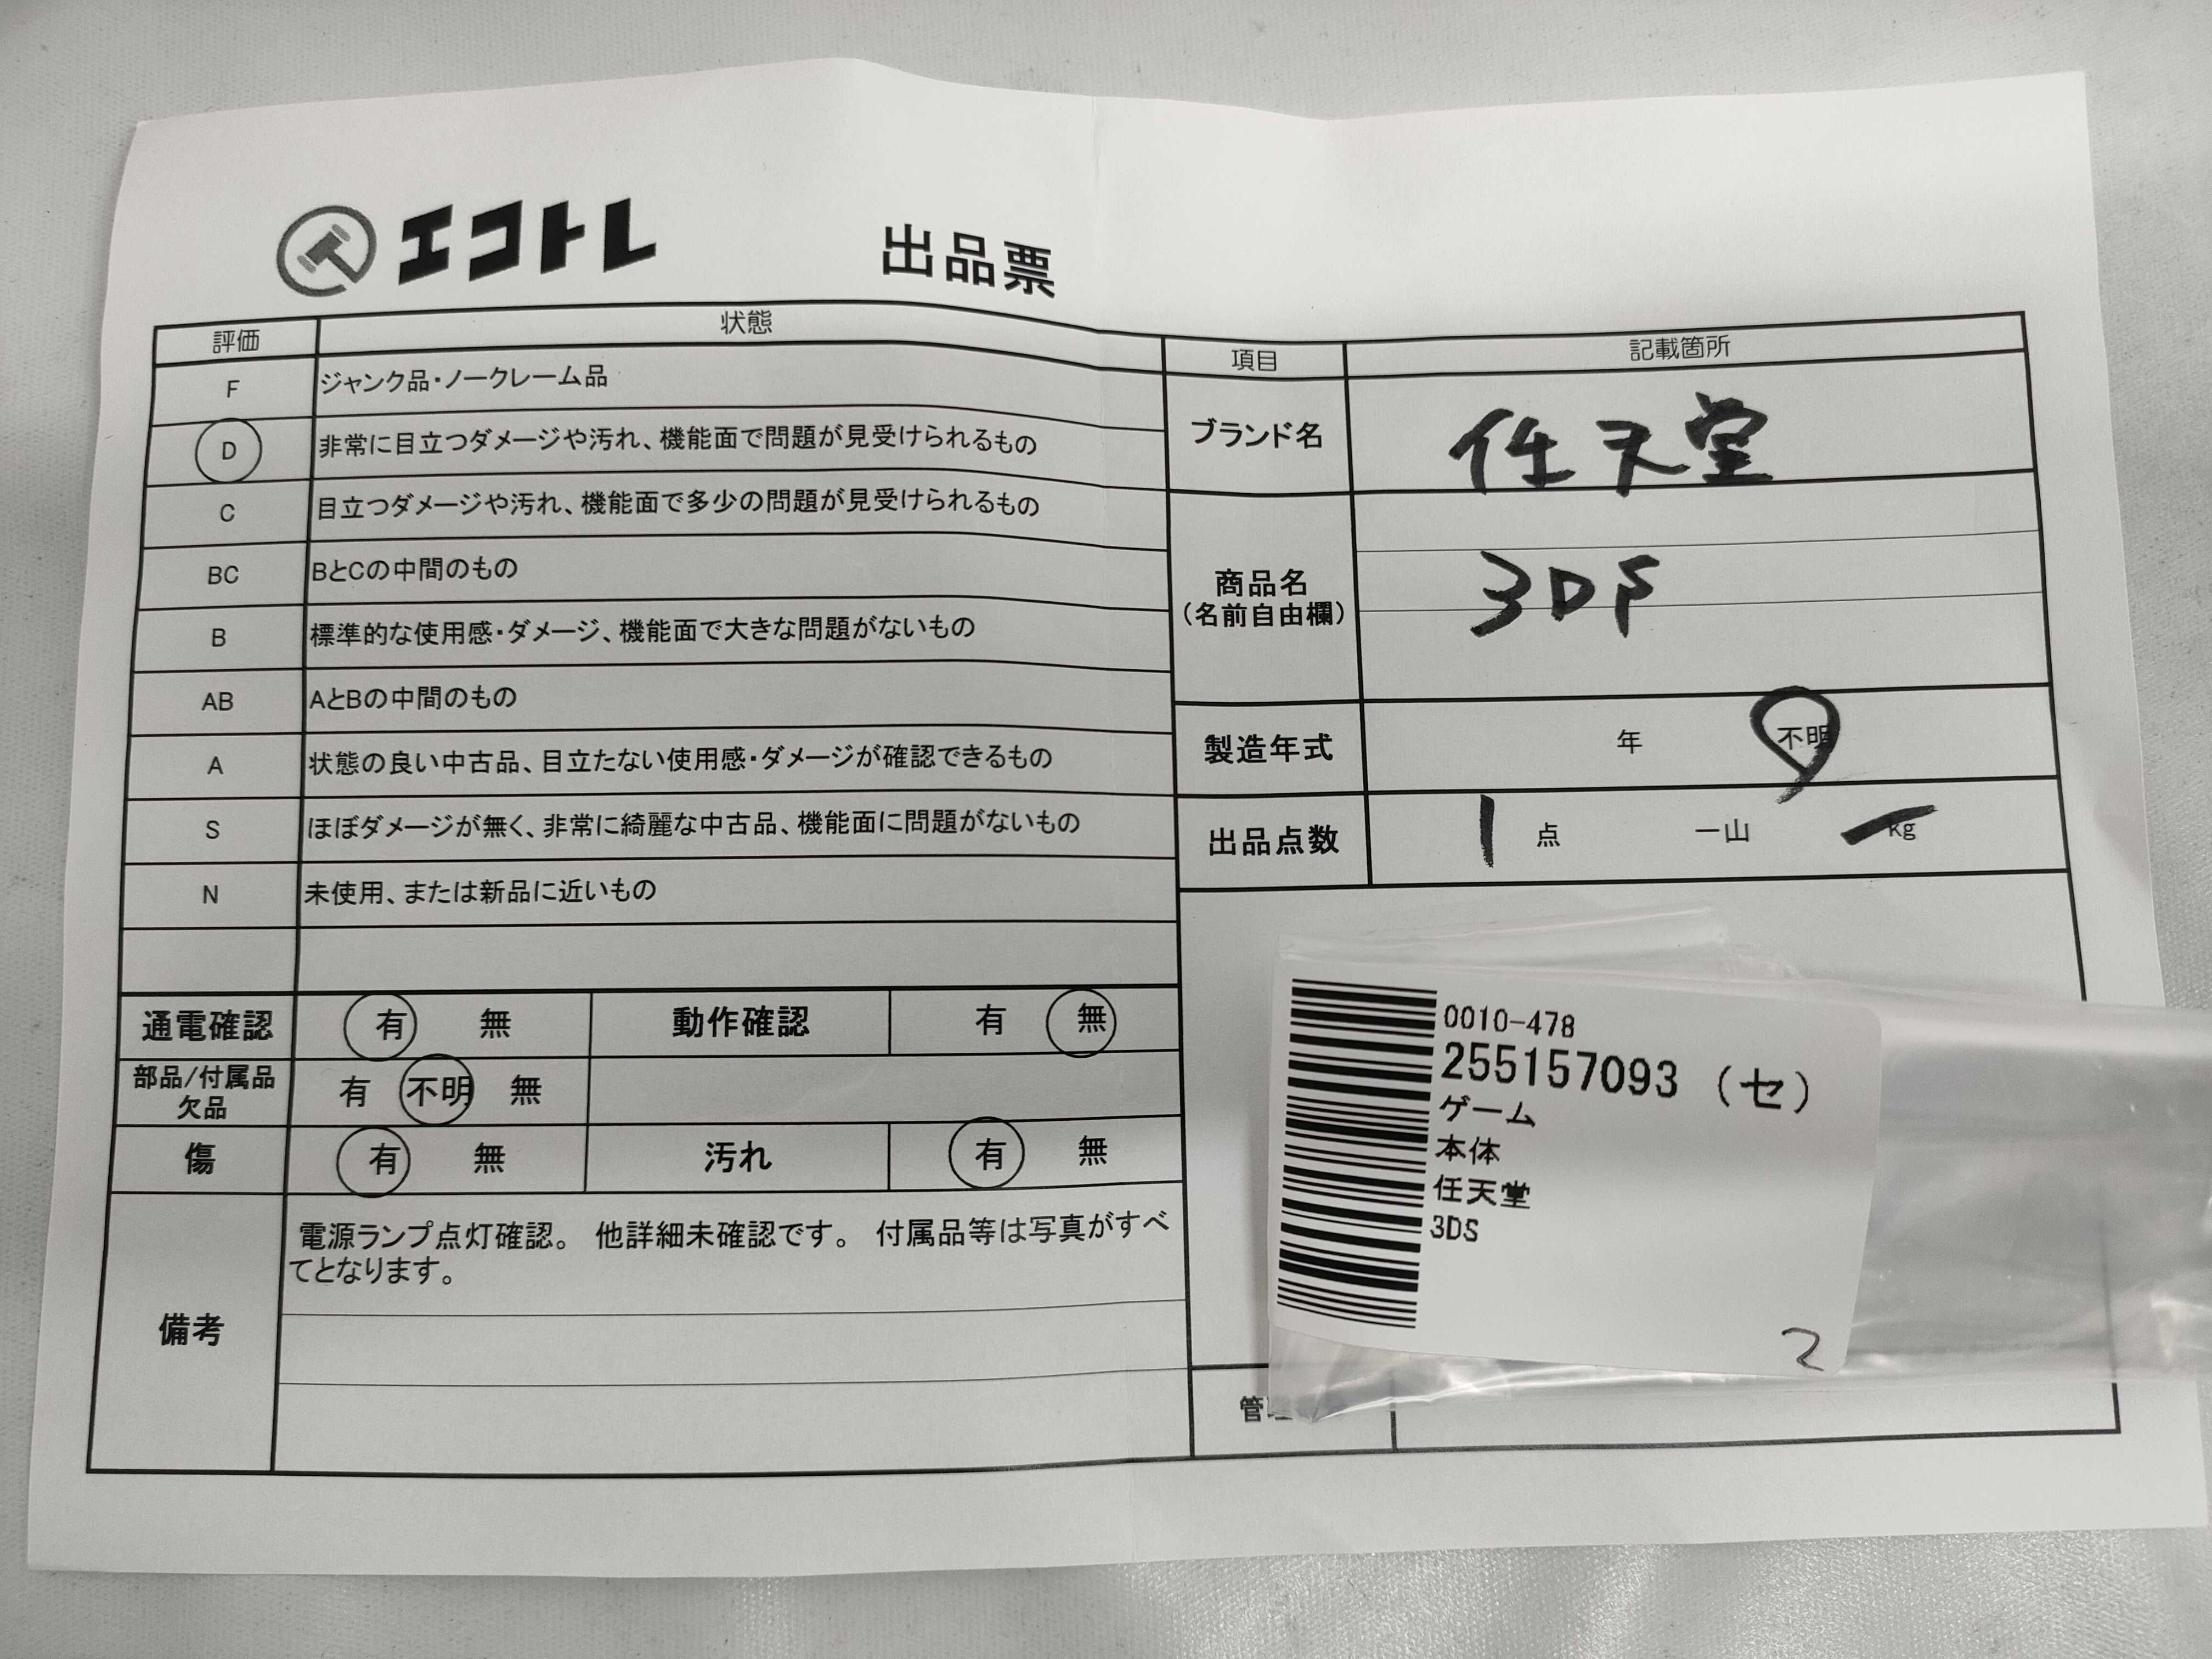 エコトレ
出品票
評価 状態
F ジャンク品・ノークレーム品
D 非常に目立つダメージや汚れ、機能面で問題が見受けられるもの
C 目立つダメージや汚れ、機能面で多少の問題が見受けられるもの
BC BとCの中間のもの
B 標準的な使用感・ダメージ、機能面で大きな問題がないもの
AB AとBの中間のもの
A 状態の良い中古品、目立たない使用感・ダメージが確認できるもの
S ほぼダメージが無く、非常に綺麗な中古品、機能面に問題がないもの
N 未使用、または新品に近いもの
通電確認 有 無 動作確認 有 無
部品/付属品
欠品
有 不明 無
傷 有 無 汚れ 有 無
備考
電源ランプ点灯確認。 他詳細未確認です。 付属品等は写真がすべ
てとなります。
項目 記載箇所
ブランド名 任天堂
商品名
(名前自由欄)
3DS
製造年式 年 不明
出品点数 1 点 一山 kg
0010-478
255157093 (セ)
ゲーム
本体
任天堂
3DS
2
管理